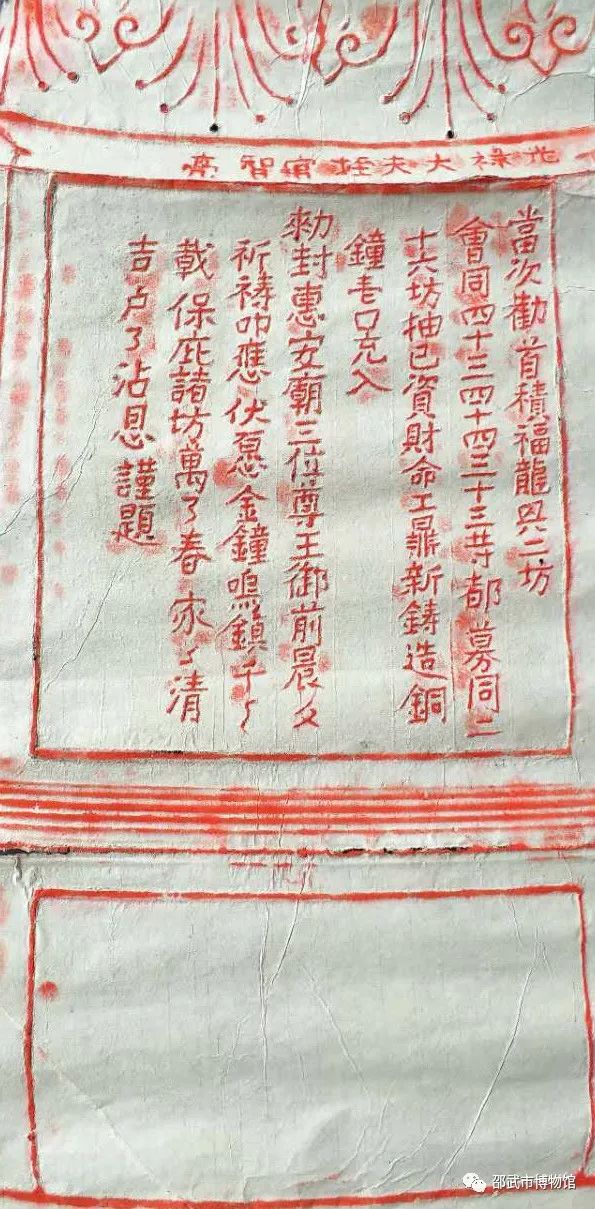 光祿大夫官智亮
當次勸首積福龍興二坊
會同四十三四十四三十三等都募同二
十六坊抽已資財命工鼎新鑄造銅
鐘壱口充入
勑封惠安廟三位尊王御前晨夕
祈禱叩應伏愿金鐘鳴鎮千々
載保庇諸坊萬々春家々清
吉戶々沾恩謹題
邵武市博物馆